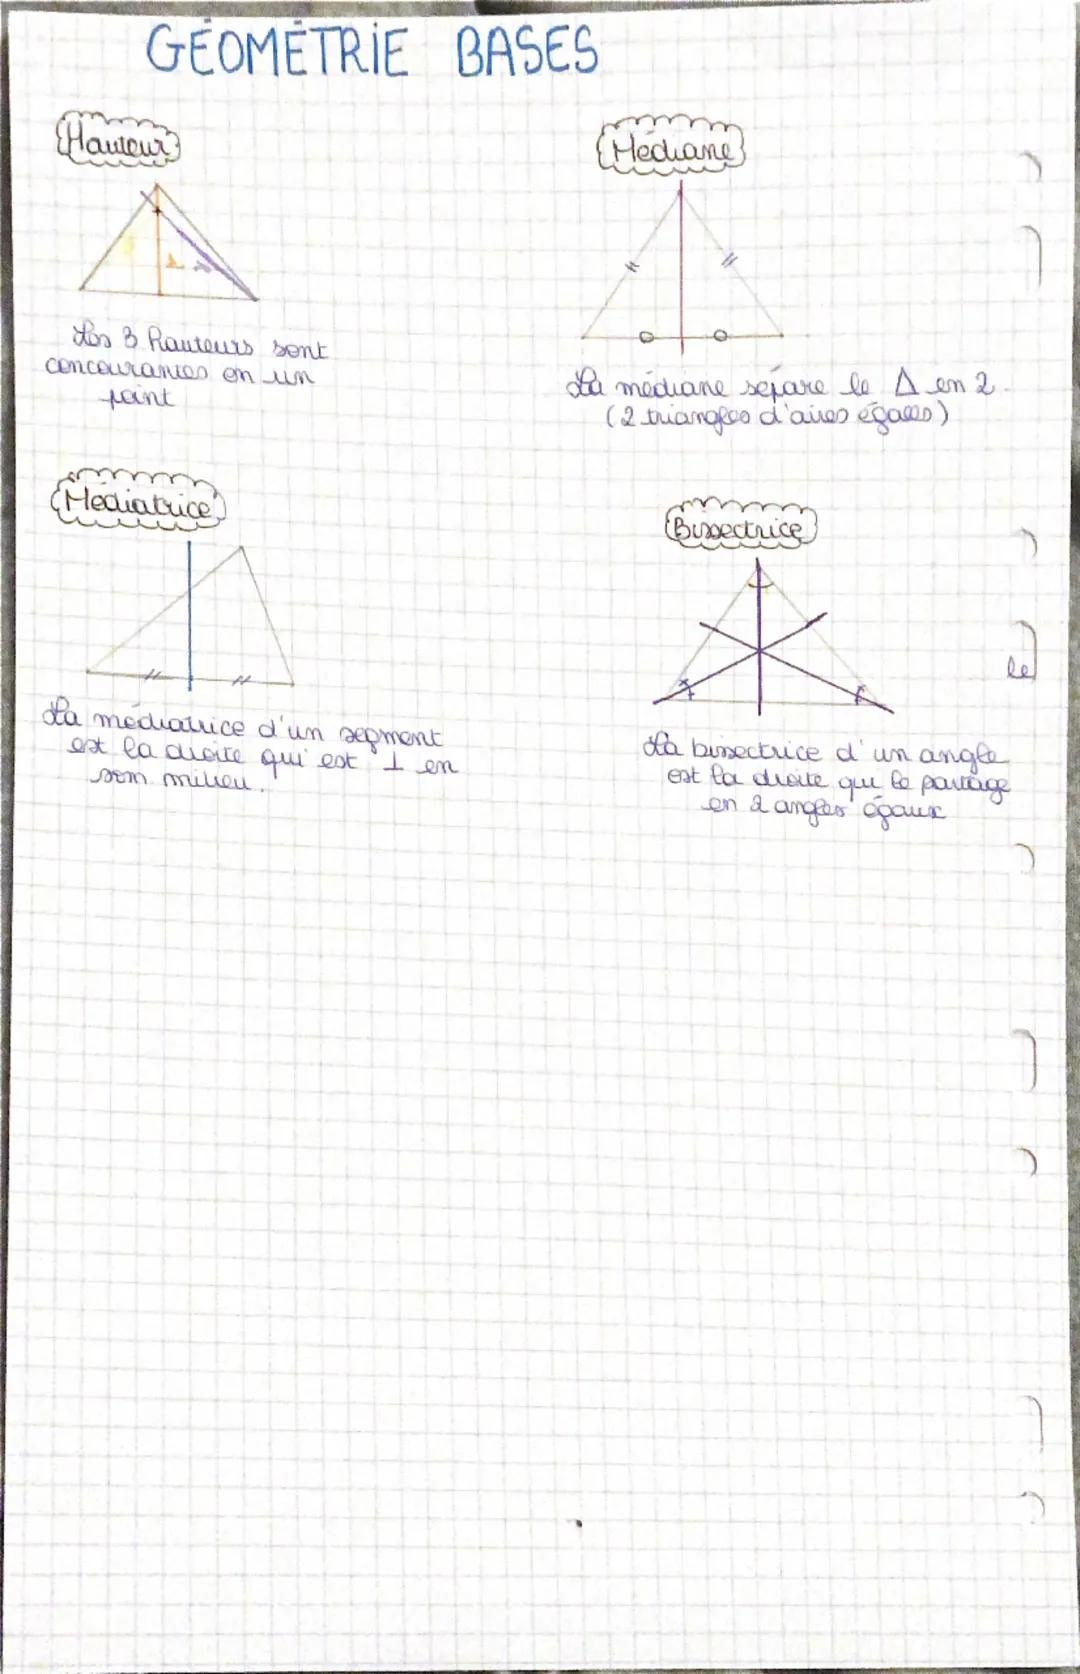 GÉOMÉTRIE BASES
Hauteur
Les 3 hauteurs sont
concourantes en un
point
Médiane
La médiane sépare le Δ en 2.
(2 triangles d'aires égales)
Médiatrice
La médiatrice d'un segment
est la droite qui est ⊥ en
son milieu.
Bissectrice
La bissectrice d'un angle
est la droite qui le partage
en 2 angles égaux
le